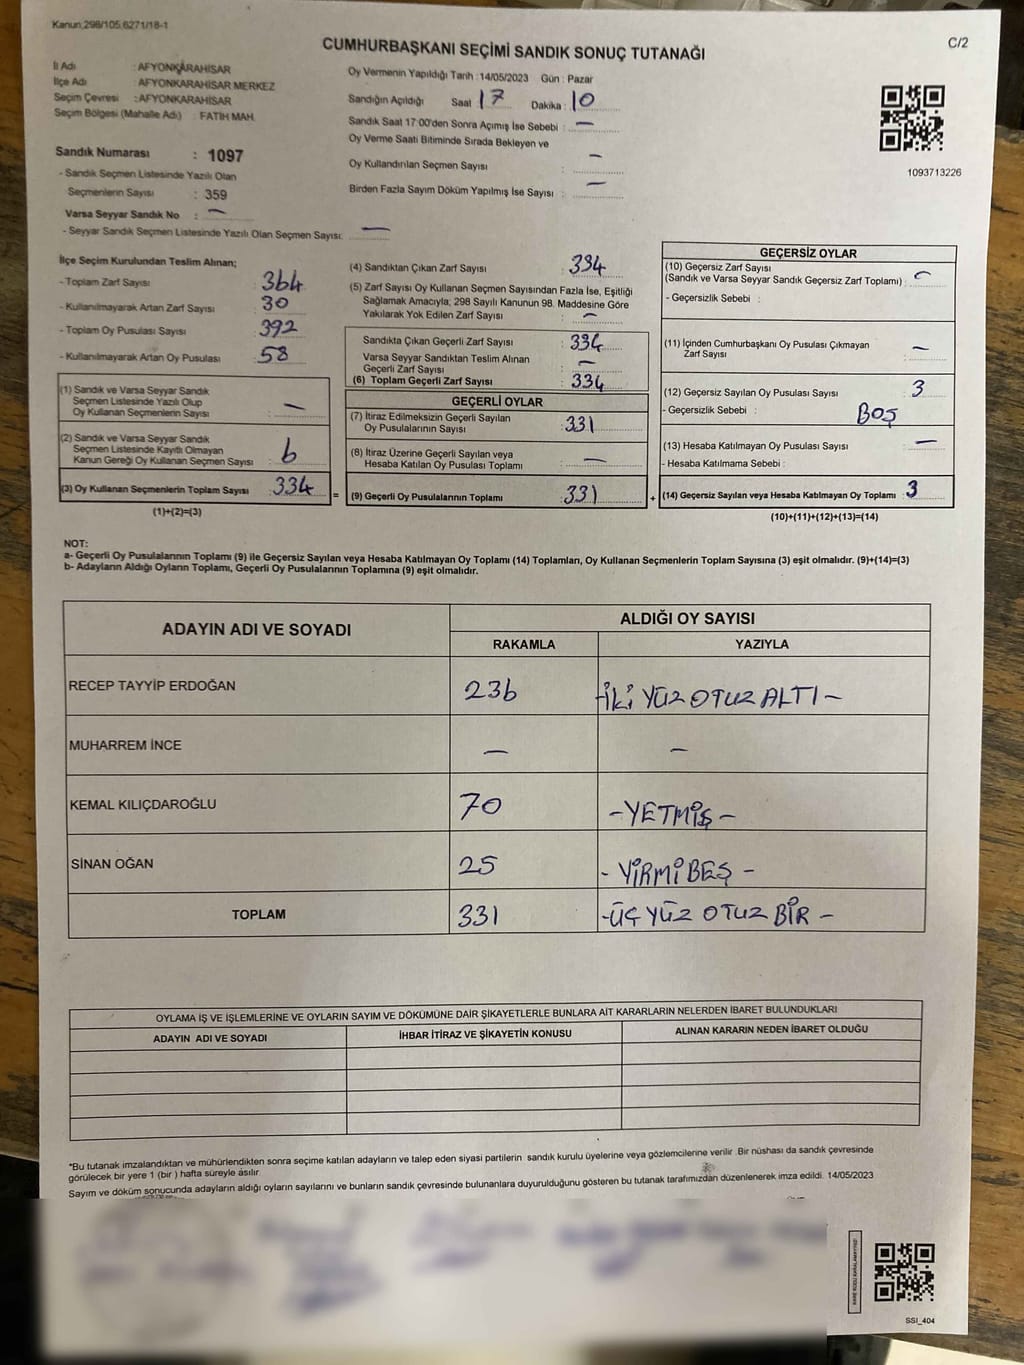 Kanun:298/105,6271/18-1
C/2
CUMHURBAŞKANI SEÇİMİ SANDIK SONUÇ TUTANAĞI
İl Adı : AFYONKARAHİSAR
İlçe Adı : AFYONKARAHİSAR MERKEZ
Seçim Çevresi : AFYONKARAHİSAR
Seçim Bölgesi (Mahalle Adı) : FATİH MAH.
Sandık Numarası : 1097
- Sandık Seçmen Listesinde Yazılı Olan
Seçmenlerin Sayısı : 359
Varsa Seyyar Sandık No : —
- Seyyar Sandık Seçmen Listesinde Yazılı Olan Seçmen Sayısı: —
Oy Vermenin Yapıldığı Tarih : 14/05/2023 Gün : Pazar
Sandığın Açıldığı Saat 17 Dakika : 10
Sandık Saat 17:00'den Sonra Açımış İse Sebebi : —
Oy Verme Saati Bitiminde Sırada Bekleyen ve
Oy Kullandırılan Seçmen Sayısı : —
Birden Fazla Sayım Döküm Yapılmış İse Sayısı : —
1093713226
İlçe Seçim Kurulundan Teslim Alınan;
- Toplam Zarf Sayısı : 364
- Kullanılmayarak Artan Zarf Sayısı : 30
- Toplam Oy Pusulası Sayısı : 392
- Kullanılmayarak Artan Oy Pusulası : 58
(1) Sandık ve Varsa Seyyar Sandık
Seçmen Listesinde Yazılı Olup
Oy Kullanan Seçmenlerin Sayısı : —
(2) Sandık ve Varsa Seyyar Sandık
Seçmen Listesinde Kayıtlı Olmayan
Kanun Gereği Oy Kullanan Seçmen Sayısı : 6
(3) Oy Kullanan Seçmenlerin Toplam Sayısı : 334
(1)+(2)=(3)
=
(4) Sandıktan Çıkan Zarf Sayısı : 334
(5) Zarf Sayısı Oy Kullanan Seçmen Sayısından Fazla İse, Eşitliği
Sağlamak Amacıyla; 298 Sayılı Kanunun 98. Maddesine Göre
Yakılarak Yok Edilen Zarf Sayısı : —
Sandıkta Çıkan Geçerli Zarf Sayısı : 334
Varsa Seyyar Sandıktan Teslim Alınan
Geçerli Zarf Sayısı : —
(6) Toplam Geçerli Zarf Sayısı : 334
GEÇERLİ OYLAR
(7) İtiraz Edilmeksizin Geçerli Sayılan
Oy Pusulalarının Sayısı : 331
(8) İtiraz Üzerine Geçerli Sayılan veya
Hesaba Katılan Oy Pusulası Toplamı : —
(9) Geçerli Oy Pusulalarının Toplamı : 331
+
GEÇERSİZ OYLAR
(10) Geçersiz Zarf Sayısı
(Sandık ve Varsa Seyyar Sandık Geçersiz Zarf Toplamı) : —
- Geçersizlik Sebebi :
(11) İçinden Cumhurbaşkanı Oy Pusulası Çıkmayan
Zarf Sayısı : —
(12) Geçersiz Sayılan Oy Pusulası Sayısı : 3
- Geçersizlik Sebebi : BOŞ
(13) Hesaba Katılmayan Oy Pusulası Sayısı : —
- Hesaba Katılmama Sebebi :
(14) Geçersiz Sayılan veya Hesaba Katılmayan Oy Toplamı : 3
(10)+(11)+(12)+(13)=(14)
NOT:
a- Geçerli Oy Pusulalarının Toplamı (9) ile Geçersiz Sayılan veya Hesaba Katılmayan Oy Toplamı (14) Toplamları, Oy Kullanan Seçmenlerin Toplam Sayısına (3) eşit olmalıdır. (9)+(14)=(3)
b- Adayların Aldığı Oyların Toplamı, Geçerli Oy Pusulalarının Toplamına (9) eşit olmalıdır.
ADAYIN ADI VE SOYADI
ALDIĞI OY SAYISI
RAKAMLA YAZIYLA
RECEP TAYYİP ERDOĞAN 236 -İKİ YÜZ OTUZ ALTI-
MUHARREM İNCE — —
KEMAL KILIÇDAROĞLU 70 -YETMİŞ-
SİNAN OĞAN 25 -YİRMİ BEŞ-
TOPLAM 331 -ÜÇ YÜZ OTUZ BİR-
OYLAMA İŞ VE İŞLEMLERİNE VE OYLARIN SAYIM VE DÖKÜMÜNE DAİR ŞİKAYETLERLE BUNLARA AİT KARARLARIN NELERDEN İBARET BULUNDUKLARI
ADAYIN ADI VE SOYADI İHBAR İTİRAZ VE ŞİKAYETİN KONUSU ALINAN KARARIN NEDEN İBARET OLDUĞU
*Bu tutanak imzalandıktan ve mühürlendikten sonra seçime katılan adayların ve talep eden siyasi partilerin sandık kurulu üyelerine veya gözlemcilerine verilir. Bir nüshası da sandık çevresinde
görülecek bir yere 1 (bir ) hafta süreyle asılır.
Sayım ve döküm sonucunda adayların aldığı oyların sayılarını ve bunların sandık çevresinde bulunanlara duyurulduğunu gösteren bu tutanak tarafımızdan düzenlenerek imza edildi. 14/05/2023
SSI_404